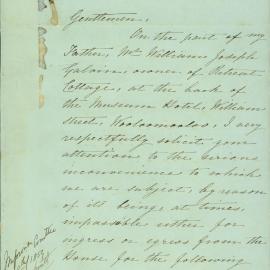 Gentlemen,
On the part of my
Father, Mr William Joseph
owner of Retreat
Cottage, at the back of
the Museum Hotel, William
Street, Woolloomooloo, I very
respectfully solicit your
attention to the serious
inconvenience to which
we are subject, by reason
of its being, at times,
impassible either for
ingress or egress from the
House for the following